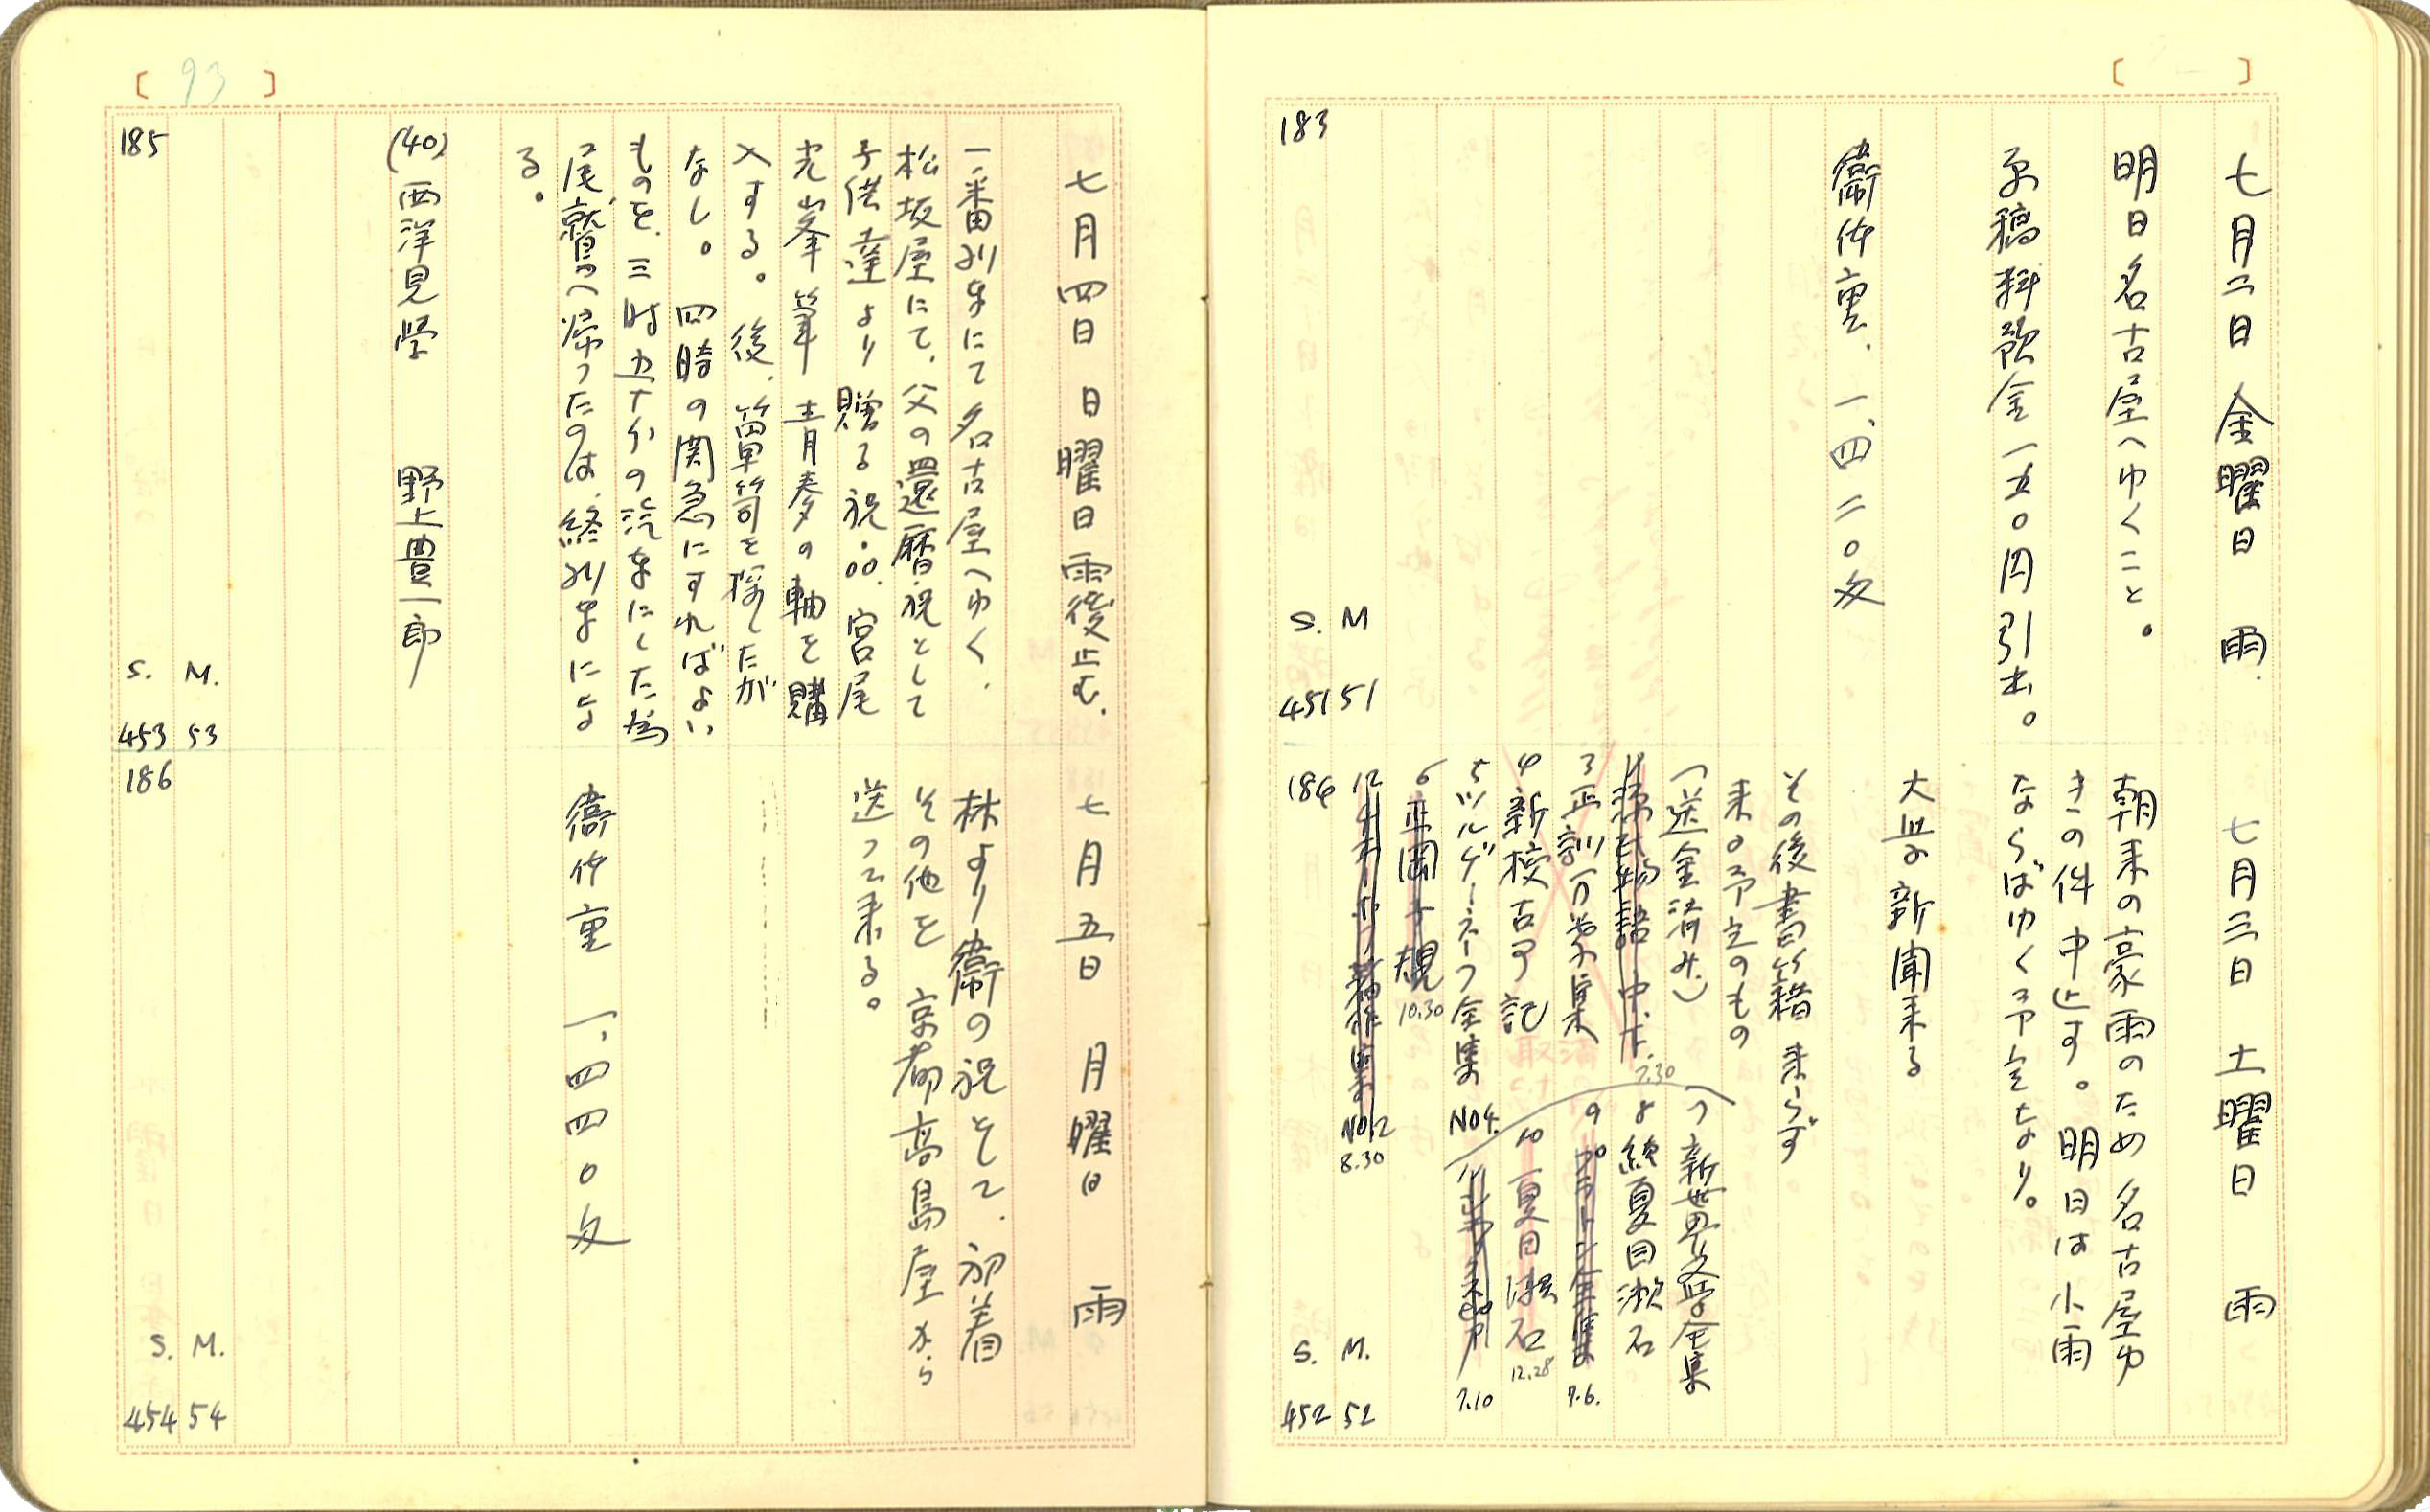 七月二日 金曜日 雨.
明日名古屋へゆくこと。
原稿料預金一五〇円引出。
衞体重、一、四二〇匁
183
S. M
451 51
七月三日 土曜日 雨
朝来の豪雨のため名古屋ゆ
きの件中止す。明日は小雨
ならばゆく予定なり。
大毎の新聞来る
その後書籍来らず
来る予定のもの
(送金済み)
源氏物語 中、下. 7.30
3 正訓万葉集
4 新校古事記
取消
5 ツルゲーネフ全集 NO4.
6 正岡子規 10.30
12 著作集 NO12 8.30
7 新世界文学全集
8 続夏目漱石
9 プラトン全集 7.6.
10 夏目漱石 12.28
7.10
184
S. M.
452 52
[ 93 ]
七月四日 日曜日 雨後止む.
一番列車にて名古屋へゆく、
松坂屋にて、父の還暦祝として
子供達より贈る祝.00. 宮尾
光峯筆 青麦の軸を購
入する。後、箪笥を探したが
なし。四時の関急にすればよい
ものを、三時五十分の汽車にした為
尾鷲へ帰ったのは、終列車にな
る。
(40) 西洋見学 野上豊一郎
185
S. M.
453 53
七月五日 月曜日 雨
林より衞の祝として、初着
その他を京都高島屋から
送って来る。
衞体重 一、四四〇匁
186
S. M.
454 54